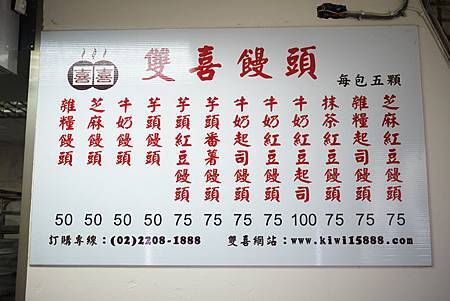 喜喜
雙喜饅頭
每包五顆
芝麻紅豆饅頭
雜糧起司饅頭
抹茶紅豆饅頭
牛奶紅豆起司
牛奶紅豆饅頭
牛奶起司饅頭
芋頭番薯饅頭
芋頭紅豆饅頭
芋頭饅頭
牛奶饅頭
芝麻饅頭
雜糧饅頭
50 50 50 50 75 75 75 75 100 75 75 75
訂購專線：(02)2208-1888 雙喜網站：www.kiwi15888.com